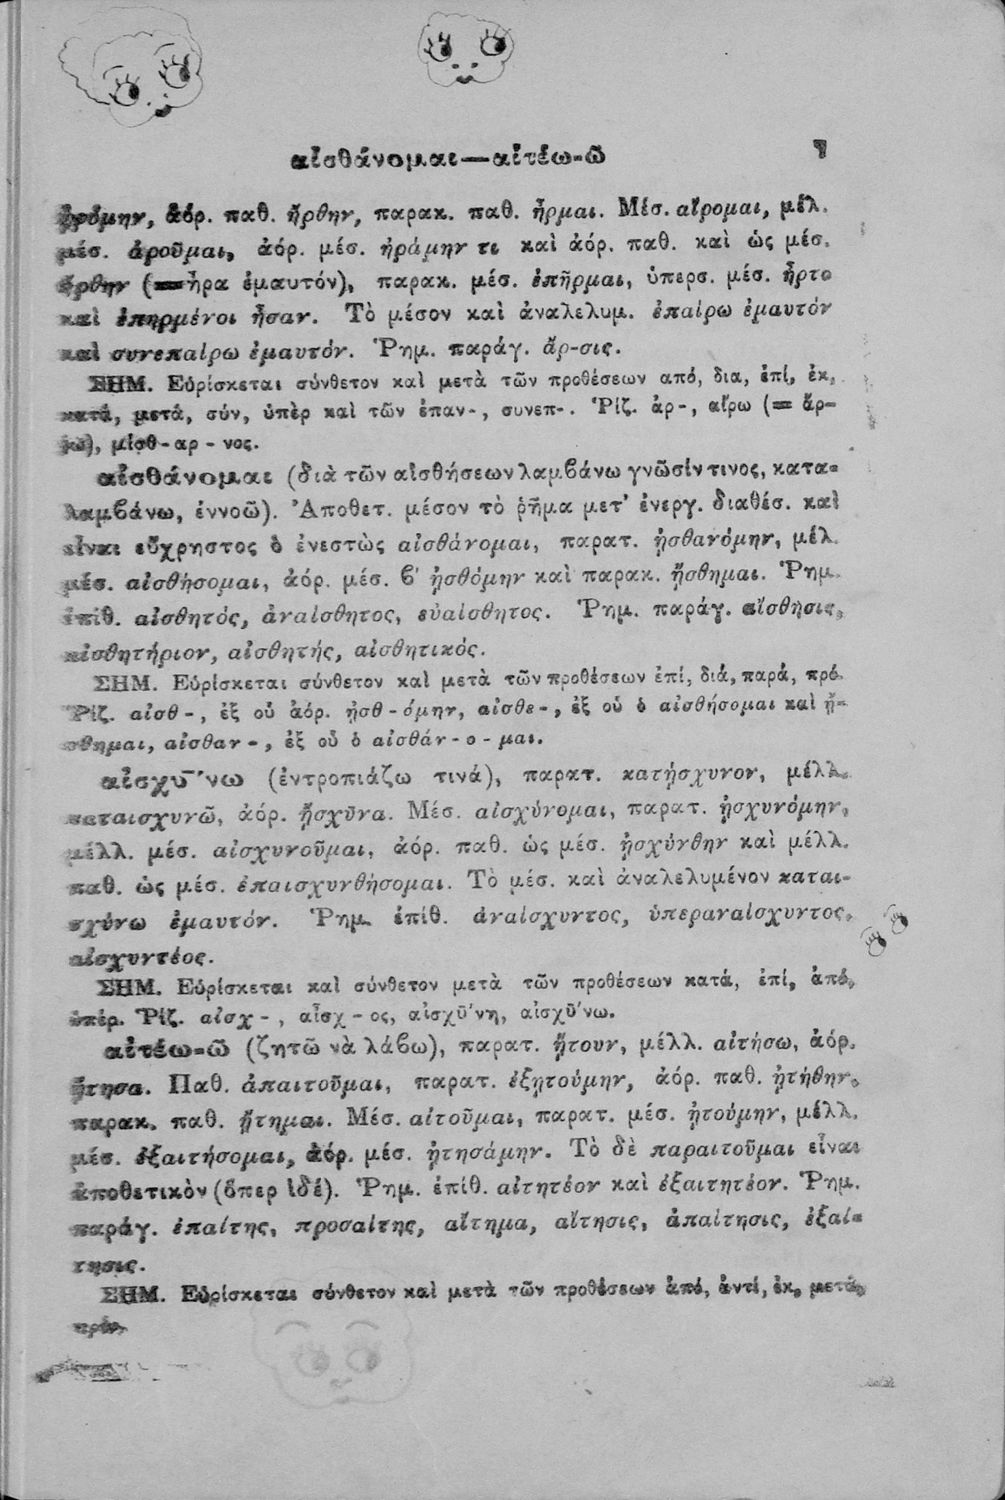 αἰσθάνομαι—αἰτέω-ῶ
ᾐρόμην, ἀόρ. παθ. ἤρθην, παρακ. παθ. ἦρμαι. Μέσ. αἴρομαι, μέλ.
μέσ. ἀροῦμαι, ἀόρ. μέσ. ἠράμην τι καὶ ἀόρ. παθ. καὶ ὡς μέσ.
ἤρθην (=ἦρα ἐμαυτόν), παρακ. μέσ. ἐπῆρμαι, ὑπερσ. μέσ. ἦρτο
καὶ ἐπηρμένοι ἦσαν. Τὸ μέσον καὶ ἀναλελυμ. ἐπαίρω ἐμαυτόν
καὶ συνεπαίρω ἐμαυτόν. Ῥημ. παράγ. ἄρ-σις.
ΣΗΜ. Εὑρίσκεται σύνθετον καὶ μετὰ τῶν προθέσεων από, δια, ἐπί, ἐκ,
κατά, μετά, σύν, ὑπὲρ καὶ τῶν ἐπαν-, συνεπ-. Ῥίζ. ἀρ-, αἴρω (= ἄρ-
jω), μίσθ-αρ-νος.
αἰσθάνομαι (διὰ τῶν αἰσθήσεων λαμβάνω γνῶσίν τινος, κατα-
λαμβάνω, ἐννοῶ). Ἀποθετ. μέσον τὸ ῥῆμα μετ' ἐνεργ. διαθέσ. καὶ
εἶναι εὔχρηστος ὁ ἐνεστὼς αἰσθάνομαι, παρατ. ᾐσθανόμην, μέλ.
μέσ. αἰσθήσομαι, ἀόρ. μέσ. β' ᾐσθόμην καὶ παρακ. ᾔσθημαι. Ῥημ.
ἐπίθ. αἰσθητός, ἀναίσθητος, εὐαίσθητος. Ῥημ. παράγ. αἴσθησις,
αἰσθητήριον, αἰσθητής, αἰσθητικός.
ΣΗΜ. Εὑρίσκεται σύνθετον καὶ μετὰ τῶν προθέσεων ἐπί, διά, παρά, πρό.
Ῥίζ. αἰσθ-, ἐξ οὗ ἀόρ. ᾐσθ-όμην, αἰσθε-, ἐξ οὗ ὁ αἰσθήσομαι καὶ ᾔ-
σθημαι, αἰσθαν-, ἐξ οὗ ὁ αἰσθάν-ο-μαι.
αἰσχῡ́νω (ἐντροπιάζω τινά), παρατ. κατῄσχυνον, μέλλ.
καταισχυνῶ, ἀόρ. ᾔσχῡνα. Μέσ. αἰσχύνομαι, παρατ. ᾐσχυνόμην,
μέλλ. μέσ. αἰσχυνοῦμαι, ἀόρ. παθ. ὡς μέσ. ᾐσχύνθην καὶ μέλλ.
παθ. ὡς μέσ. ἐπαισχυνθήσομαι. Τὸ μέσ. καὶ ἀναλελυμένον καται-
σχύνω ἐμαυτόν. Ῥημ. ἐπίθ. ἀναίσχυντος, ὑπεραναίσχυντος,
αἰσχυντέος.
ΣΗΜ. Εὑρίσκεται καὶ σύνθετον μετὰ τῶν προθέσεων κατά, ἐπί, ἀπό,
ὑπέρ. Ῥίζ. αἰσχ-, αἶσχ-ος, αἰσχῡ́νη, αἰσχῡ́νω.
αἰτέω-ῶ (ζητῶ νὰ λάβω), παρατ. ᾔτουν, μέλλ. αἰτήσω, ἀόρ.
ᾔτησα. Παθ. ἀπαιτοῦμαι, παρατ. ἐξῃτούμην, ἀόρ. παθ. ᾐτήθην,
παρακ. παθ. ᾔτημαι. Μέσ. αἰτοῦμαι, παρατ. μέσ. ᾐτούμην, μέλλ.
μέσ. ἐξαιτήσομαι, ἀόρ. μέσ. ᾐτησάμην. Τὸ δὲ παραιτοῦμαι εἶναι
ἀποθετικὸν (ὅπερ ἰδέ). Ῥημ. ἐπίθ. αἰτητέον καὶ ἐξαιτητέον. Ῥημ.
παράγ. ἐπαίτης, προσαίτης, αἴτημα, αἴτησις, ἀπαίτησις, ἐξαί-
τησις.
ΣΗΜ. Εὑρίσκεται σύνθετον καὶ μετὰ τῶν προθέσεων ἀπό, ἀντί, ἐκ, μετά,